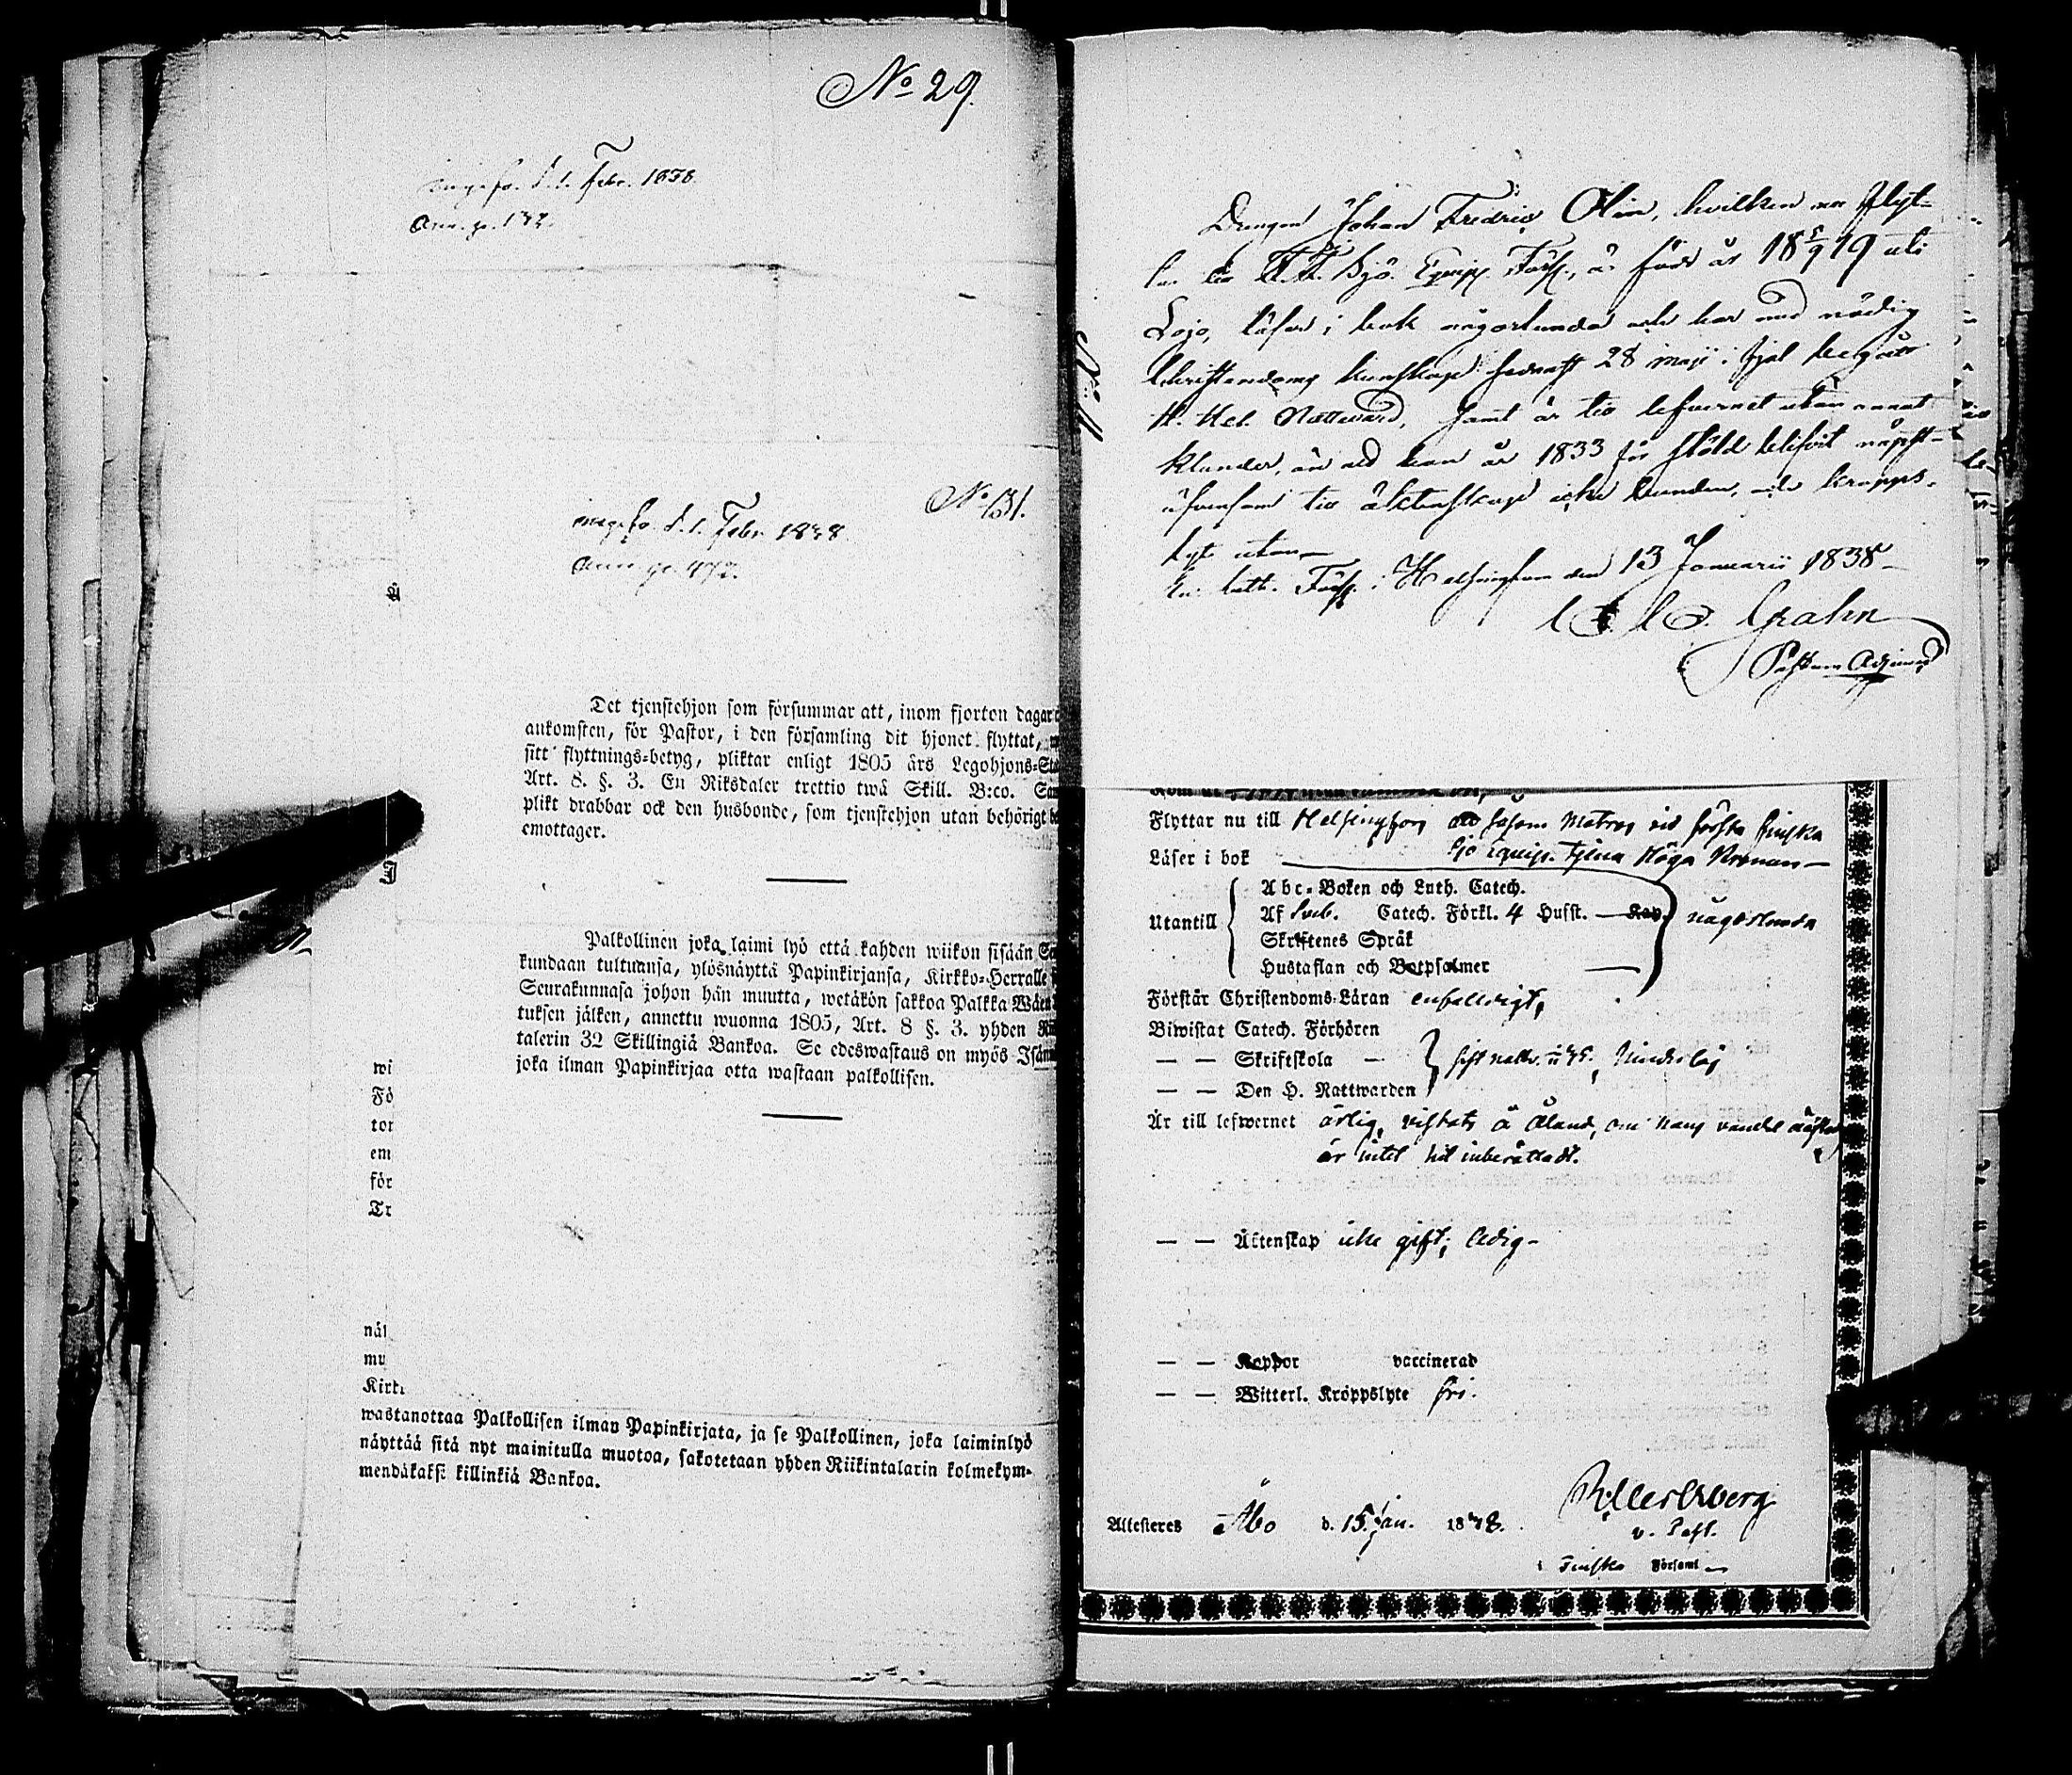 No 29.
d. 1. Febr. 1838.
No 31.
d. 1. Febr. 1838.
Det tjenstehjon som försummar att, inom fjorton dagar
ankomsten, för Pastor, i den församling dit hjonet flyttat,
sitt flyttnings-betyg, pliktar enligt 1805 års Legohjons-
Art. 8. §. 3. En Riksdaler trettio twå Skill. B:co.
plikt drabbar ock den husbonde, som tjenstehjon utan behörigt
emottager.
Palkollinen joka laimi lyö että kahden wiikon sisään
kundaan tultuansa, ylösnäyttä Papinkirjansa, Kirkko-Herralle
Seurakunnasa johon hän muutta, wetäkön sakkoa Palkka
tuksen jälken, annettu wuonna 1805, Art. 8 §. 3. yhden
talerin 32 Skillingiä Bankoa. Se edeswastaus on myös
joka ilman Papinkirjaa otta wastaan palkollisen.
wi
Fö
tor
em
för
Tr
näl
mu
Kirk
wastanottaa Palkollisen ilman Papinkirjata, ja se Palkollinen, joka laiminlyö
näyttää sitä nyt mainitulla muotoa, sakotetaan yhden Riikintalarin kolmekym-
mendäkaksi killinkiä Bankoa.
Drengen Johan Fredric Olin, hvilken nu flyt-
Sjö. Equip. Förs., är född år 18 5/9 19 uti
Lojo, läser i bok någorlunda och har med nödig
Christendoms kunskap sednast 28 maji i fjol begått
H. Hel. Nattvard, samt är till lefvernet utan annat
klander, än att han år 1833 för stöld blifvit näpst
äfvensom till äktenskap icke bunden, och kropps-
lyte utan
Förs. i Helsingfors den 13 Januarii 1838
Grahn
Pastors Adjunct
Flyttar nu till Helsingfors att såsom Matros vid första finska
Läser i bok Sjö Equip. tjena Höga Kronan
Abc-Boken och Luth. Catech.
Utantill Af Sveb. Catech. Förkl. 4 Husst. Kap. någorlunda
Skriftenes Språk
Hustaflan och Botpsalmer
Förstår Christendoms-Läran enfalldigt,
Biwistat Catech. Förhören
— — Skriftskola —
— — Den H. Nattwarden
Är till lefwernet ärlig, vistats å Åland, om hans vandel
är intet hit inberättadt.
— — Äktenskap icke gift; ledig
— — Koppor vaccinerad
— — Witterl. Kroppslyte fri.
Attesteres Åbo d. 15 Jan. 1838.
v. Past.
i Finska Församl